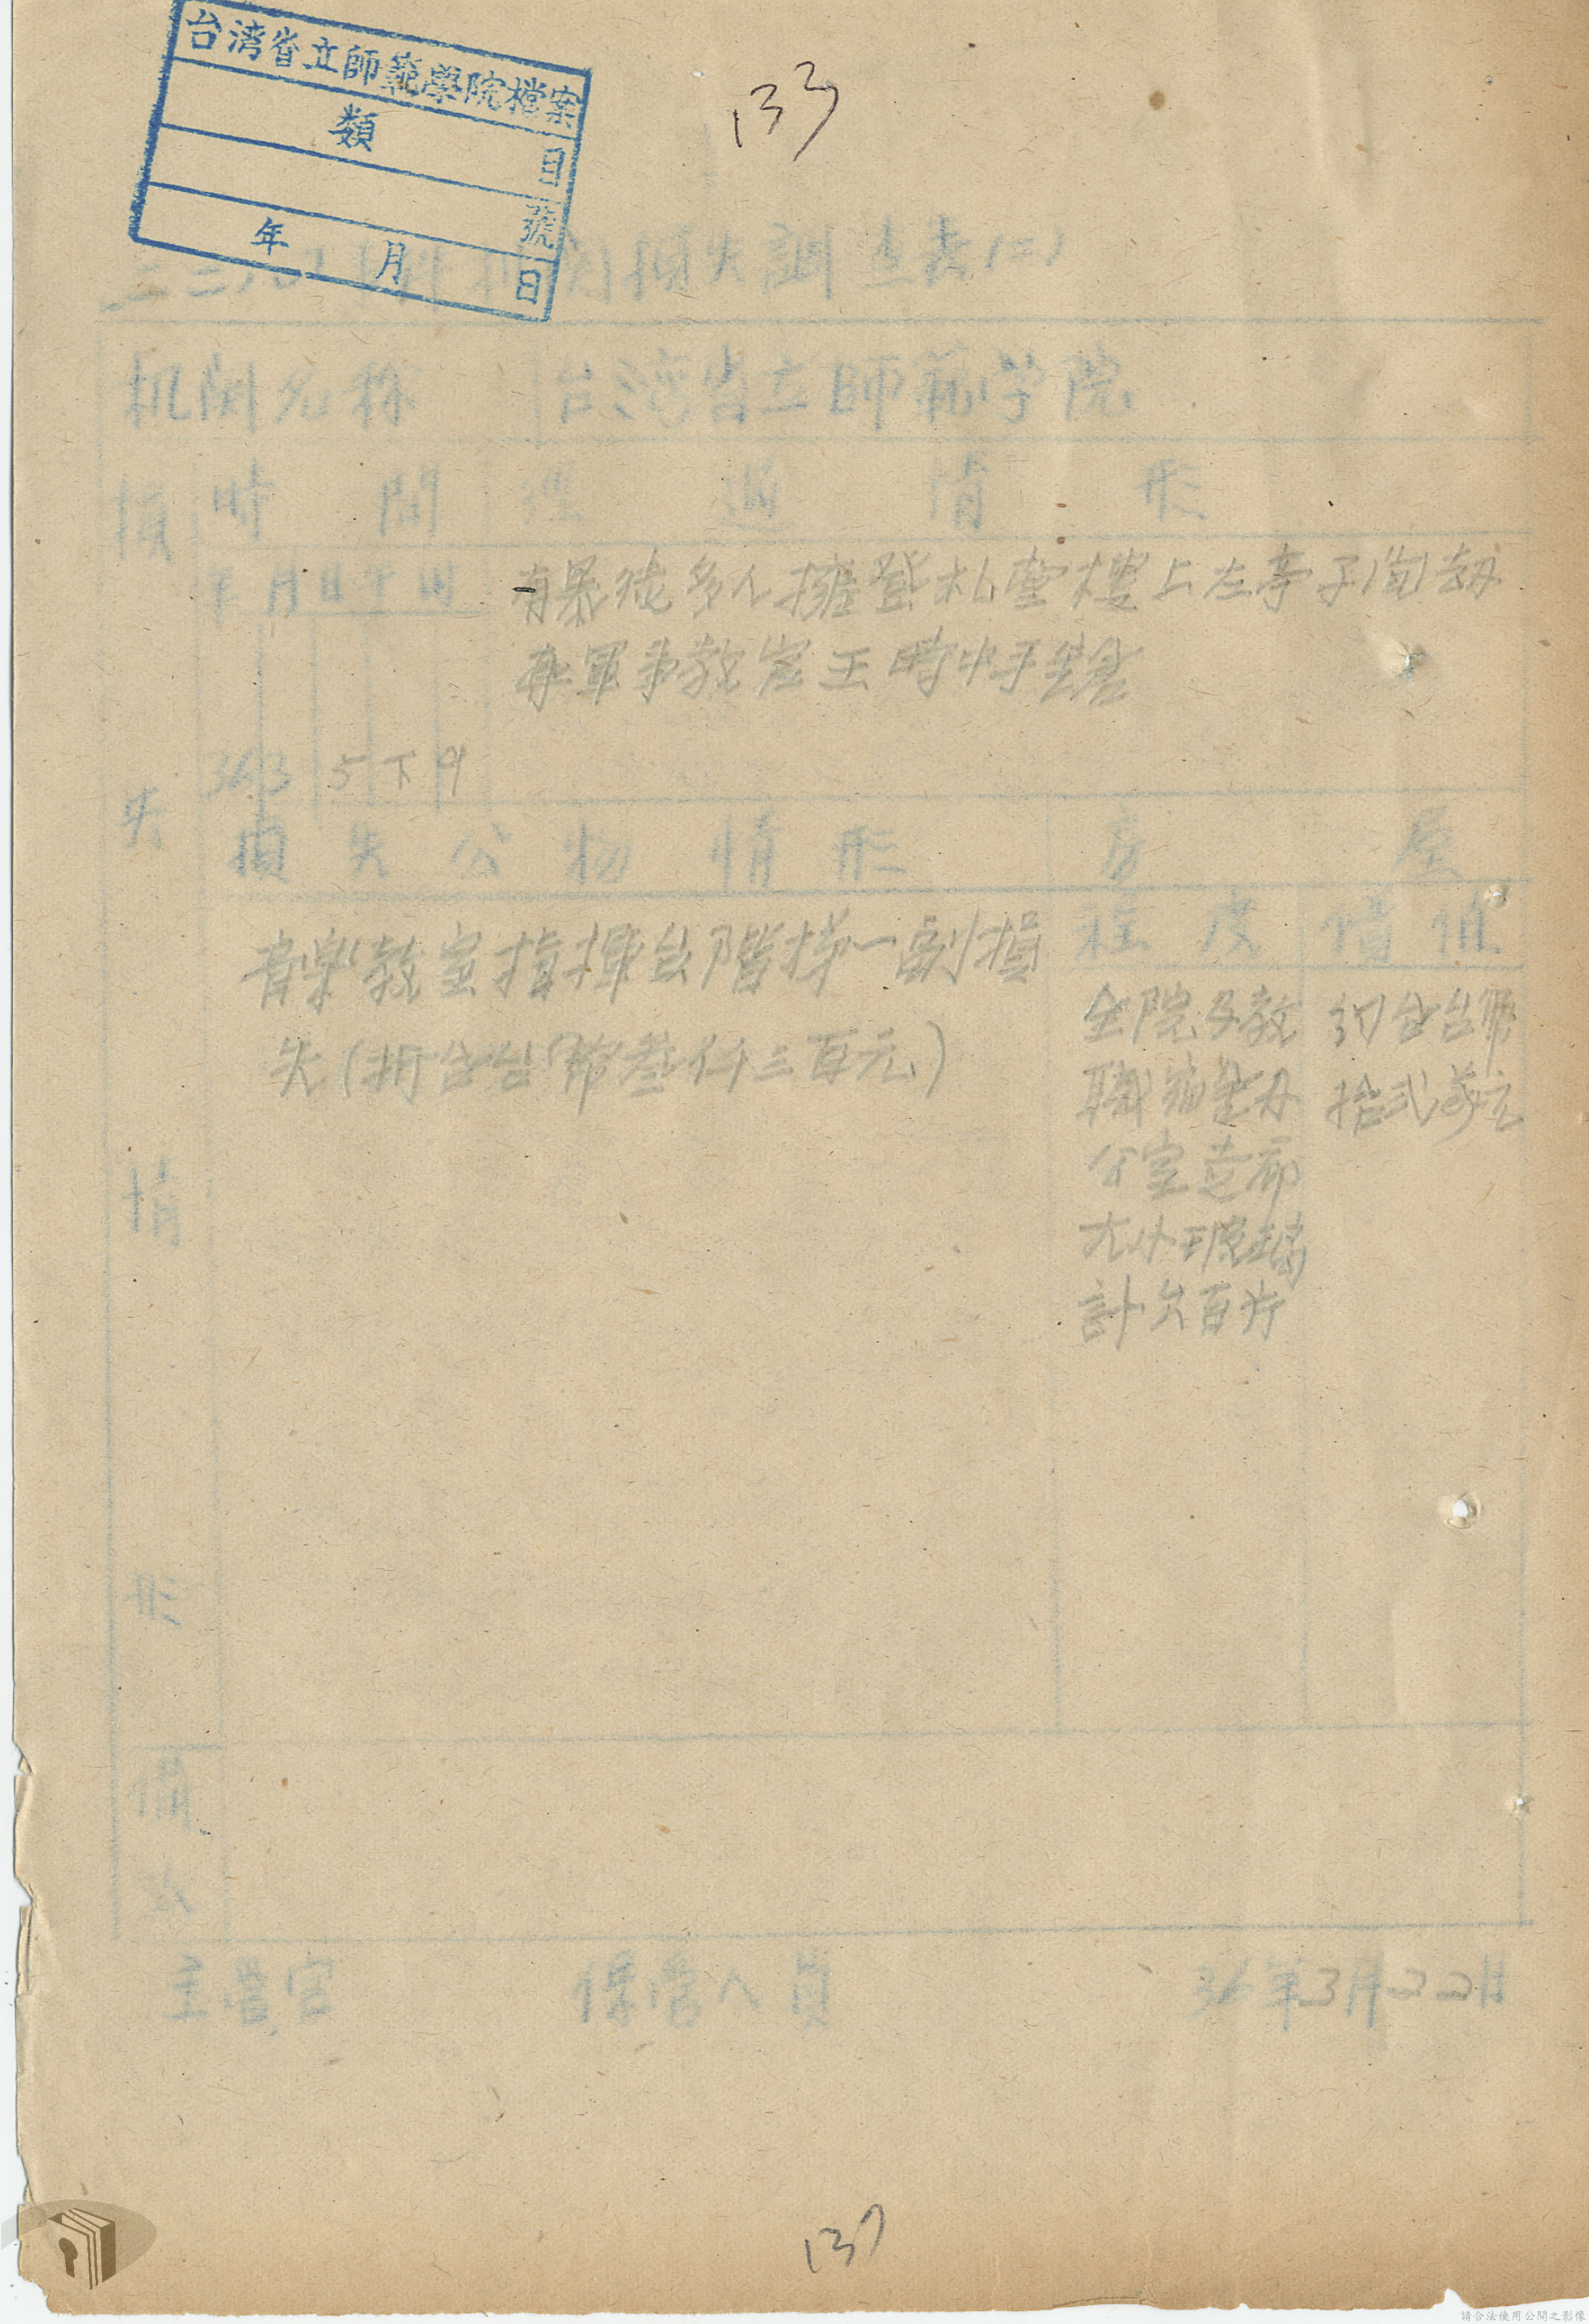 台湾省立師範學院檔案
類 目
號
年 月 日
133
損失調查表(二)
机関名称 台湾省立師範学院
損失情形
時間 經過情形
年 月 日 午 時
36 3 5 下 9
有暴徒多人擁登礼堂樓上左亭子間劫
軍事教官王時中手鎗
損失公物情形 房屋
程度 價值
音楽教室指揮台階梯一副損
失(折合台幣叁仟三百元)
全院及教
職宿舍办
公室
大小玻璃
計六百片
約合台幣
拾弍萬元
備攷
主管官 保管人員 36年3月22日
137
請合法使用公開之影像